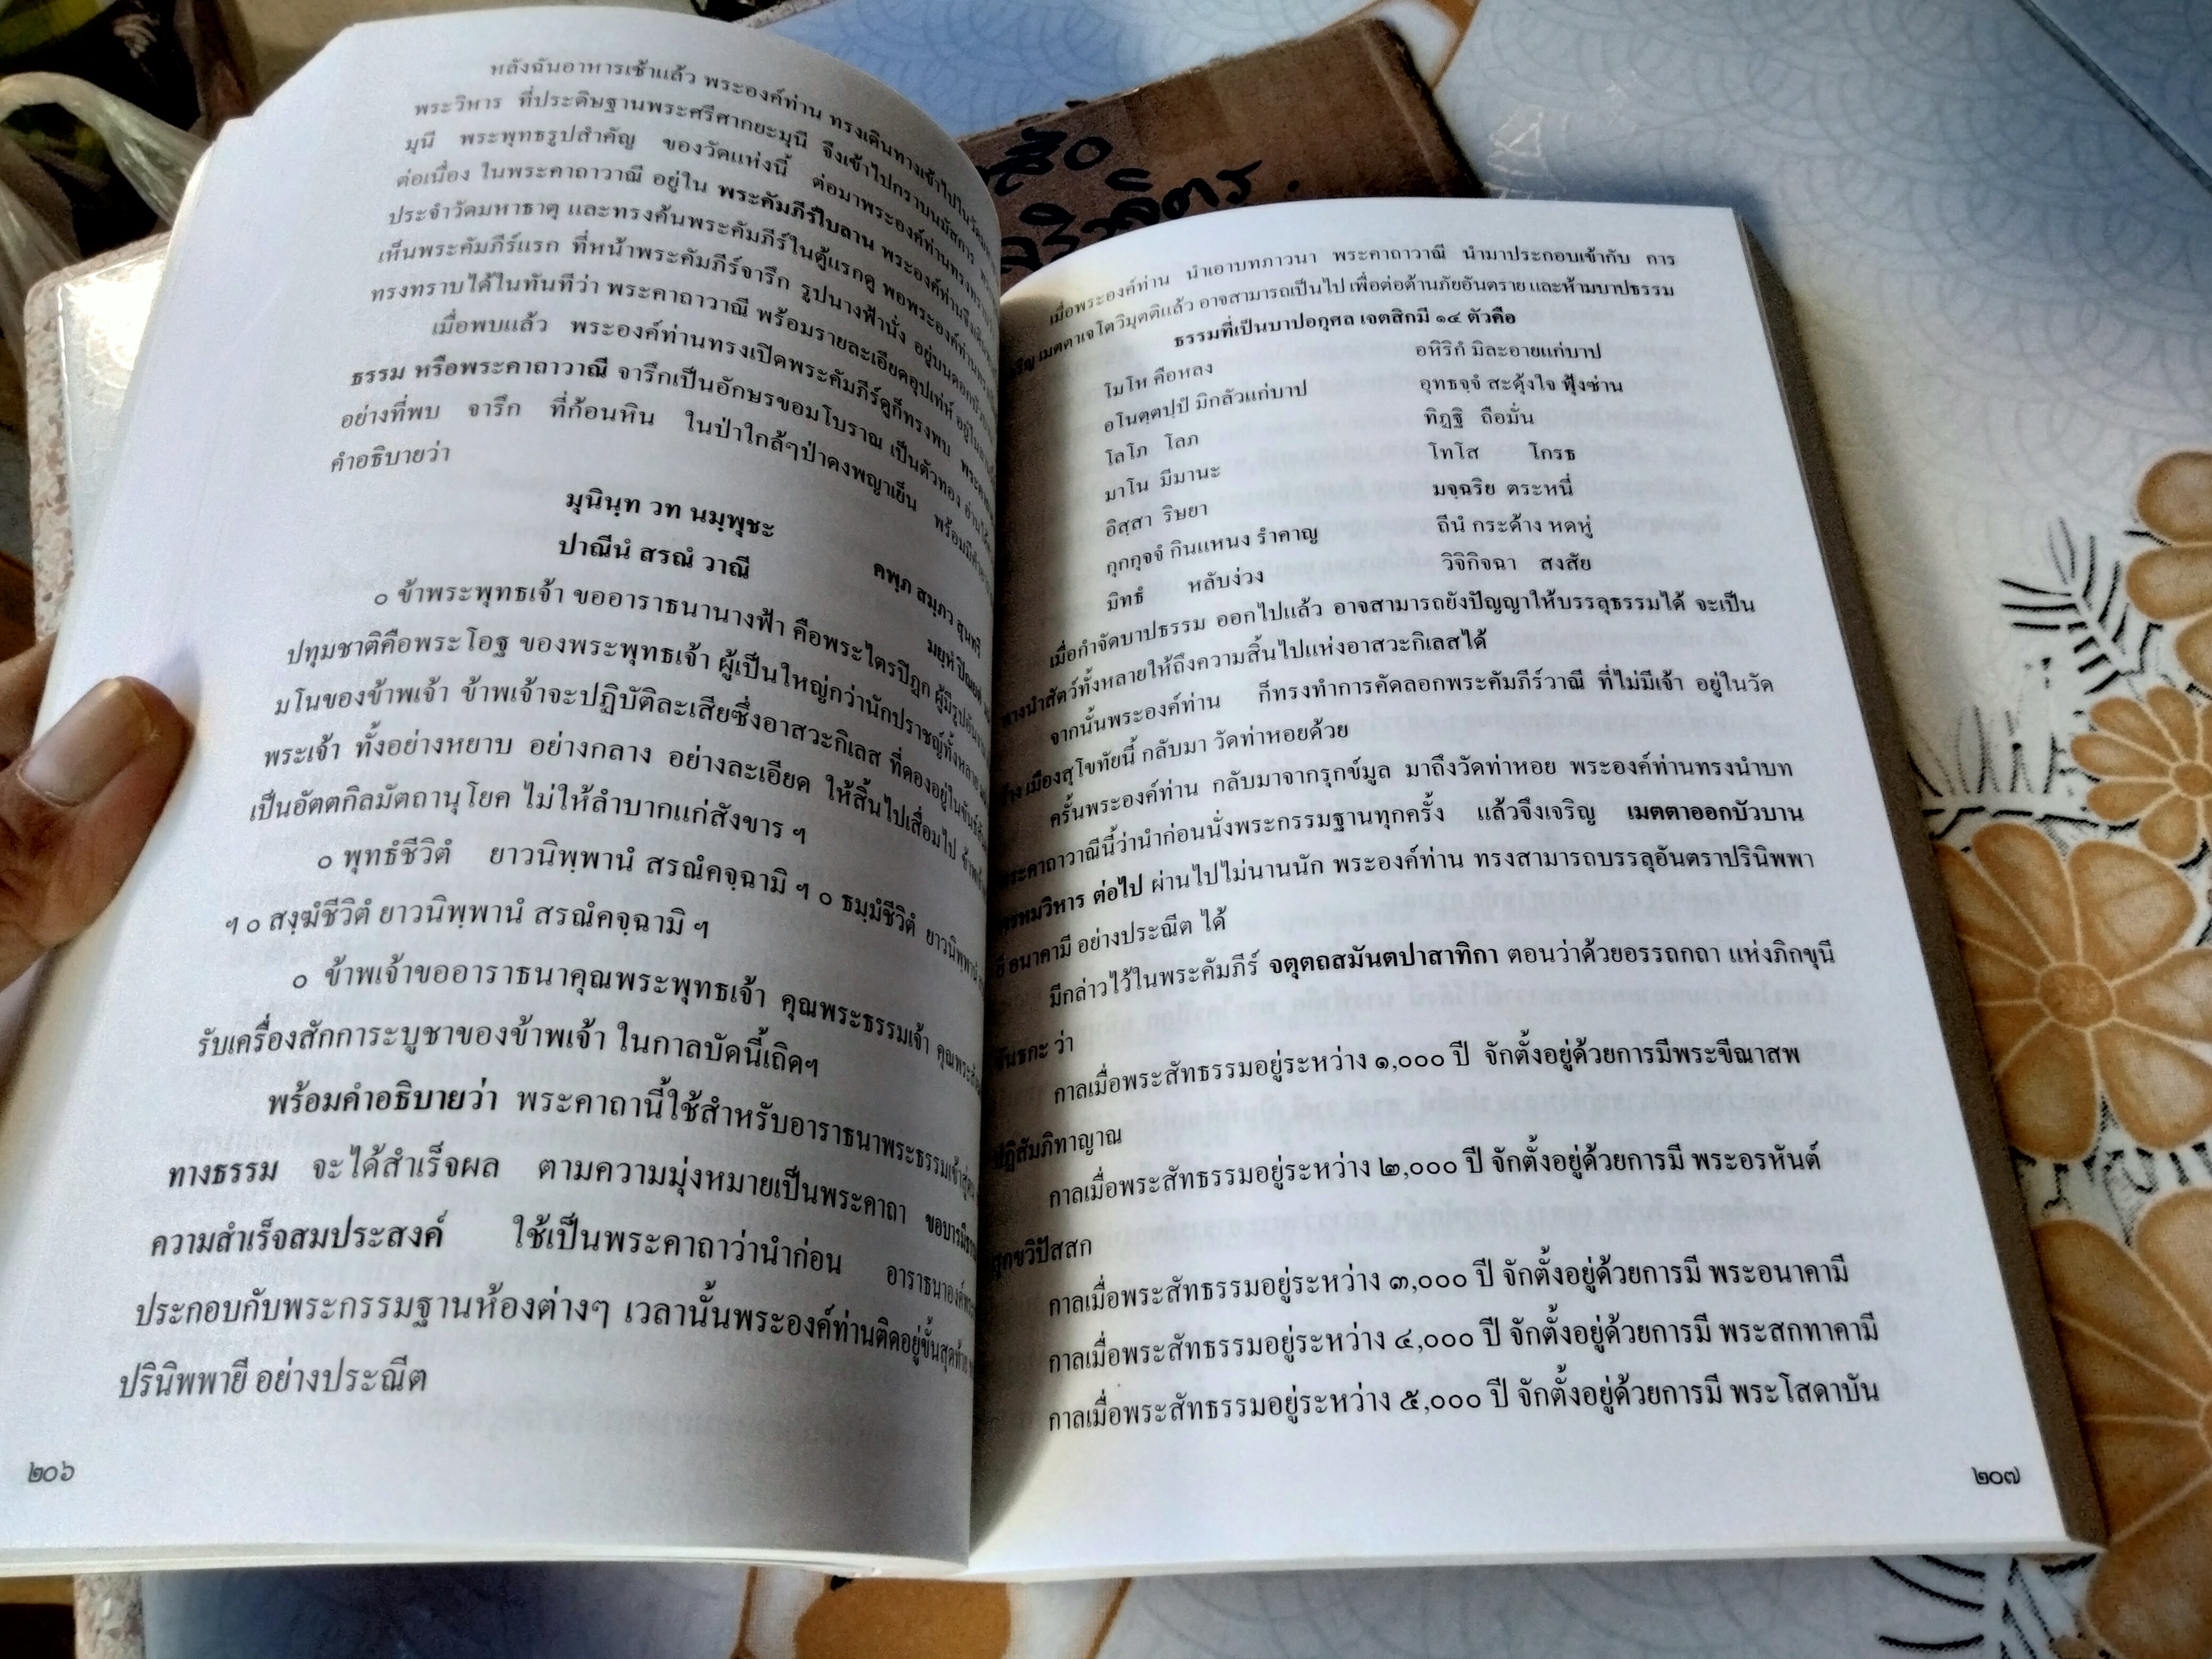 หลังฉันอาหารเช้าแล้ว พระองค์ท่าน ทรงเดินทางเข้าไปใน
พระวิหาร ที่ประดิษฐานพระศรีศากยะมุนี จึงเข้าไปกราบนมัสการ
มุนี พระพุทธรูปสำคัญ ของวัดแห่งนี้ ต่อมาพระองค์ท่านทรง
ต่อเนื่อง ในพระคาถาวาณี อยู่ใน พระคัมภีร์ใบลาน พระองค์ท่านจึง
ประจำวัดมหาธาตุ และทรงค้นพระคัมภีร์ในตู้แรกดู พอพระองค์ท่าน
เห็นพระคัมภีร์แรก ที่หน้าพระคัมภีร์จารึก รูปนางฟ้านั่ง อยู่บนดอกบัว
ทรงทราบได้ในทันทีว่า พระคาถาวาณี พร้อมรายละเอียดอุปเท่ห์ อยู่ใน
เมื่อพบแล้ว พระองค์ท่านทรงเปิดพระคัมภีร์ดูก็ทรงพบ
ธรรม หรือพระคาถาวาณี จารึกเป็นอักษรขอมโบราณ เป็นตัวทอง
อย่างที่พบ จารึก ที่ก้อนหิน ในป่าใกล้ๆป่าดงพญาเย็น พร้อมมี
คำอธิบายว่า
มุนินฺท วท นมฺพุชะ คพฺภ สมฺภว สุนฺทรี
ปาณีนํ สรณํ วาณี มยฺหํ
๐ ข้าพระพุทธเจ้า ขออาราธนานางฟ้า คือพระไตรปิฎก ผู้มีรูป
ปทุมชาติคือพระโอฐ ของพระพุทธเจ้า ผู้เป็นใหญ่กว่านักปราชญ์ทั้งหลาย
มโนของข้าพเจ้า ข้าพเจ้าจะปฏิบัติละเสียซึ่งอาสวะกิเลส ที่ดองอยู่ใน
พระเจ้า ทั้งอย่างหยาบ อย่างกลาง อย่างละเอียด ให้สิ้นไปเสื่อมไป
เป็นอัตตกิลมัตถานุโยค ไม่ให้ลำบากแก่สังขาร ฯ
๐ พุทธํชีวิตํ ยาวนิพฺพานํ สรณํคจฺฉามิ ฯ ๐ ธมฺมํชีวิตํ ยาวนิพฺพานํ
ฯ ๐ สงฺฆํชีวิตํ ยาวนิพฺพานํ สรณํคจฺฉามิ ฯ
๐ ข้าพเจ้าขออาราธนาคุณพระพุทธเจ้า คุณพระธรรมเจ้า
รับเครื่องสักการะบูชาของข้าพเจ้า ในกาลบัดนี้เถิดฯ
พร้อมคำอธิบายว่า พระคาถานี้ใช้สำหรับอาราธนาพระธรรมเข้าสู่
ทางธรรม จะได้สำเร็จผล ตามความมุ่งหมายเป็นพระคาถา ขอบารมี
ความสำเร็จสมประสงค์ ใช้เป็นพระคาถาว่านำก่อน อาราธนาองค์พระ
ประกอบกับพระกรรมฐานห้องต่างๆ เวลานั้นพระองค์ท่านติดอยู่ขั้นสุดท้าย
ปรินิพพายี อย่างประณีต
๒๐๖
เมื่อพระองค์ท่าน นำเอาบทภาวนา พระคาถาวาณี นำมาประกอบเข้ากับ การ
เมตตาเจโตวิมุตติแล้ว อาจสามารถเป็นไป เพื่อต่อต้านภัยอันตราย และห้ามบาปธรรม
ธรรมที่เป็นบาปอกุศล เจตสิกมี ๑๔ ตัวคือ
โมโห คือหลง อหิริกํ มิละอายแก่บาป
อโนตฺตปฺปํ มิกลัวแก่บาป อุทธจฺจํ สะดุ้งใจ ฟุ้งซ่าน
โลโภ โลภ ทิฏฐิ ถือมั่น
มาโน มีมานะ โทโส โกรธ
อิสฺสา ริษยา มจฺฉริย ตระหนี่
กุกกุจจํ กินแหนง รำคาญ ถีนํ กระด้าง หดหู่
มิทธํ หลับง่วง วิจิกิจฉา สงสัย
เมื่อกำจัดบาปธรรม ออกไปแล้ว อาจสามารถยังปัญญาให้บรรลุธรรมได้ จะเป็น
ทางนำสัตว์ทั้งหลายให้ถึงความสิ้นไปแห่งอาสวะกิเลสได้
จากนั้นพระองค์ท่าน ก็ทรงทำการคัดลอกพระคัมภีร์วาณี ที่ไม่มีเจ้า อยู่ในวัด
เมืองสุโขทัยนี้ กลับมา วัดท่าหอยด้วย
ครั้นพระองค์ท่าน กลับมาจากรุกข์มูล มาถึงวัดท่าหอย พระองค์ท่านทรงนำบท
พระคาถาวาณีนี้ว่านำก่อนนั่งพระกรรมฐานทุกครั้ง แล้วจึงเจริญ เมตตาออกบัวบาน
พรหมวิหาร ต่อไป ผ่านไปไม่นานนัก พระองค์ท่าน ทรงสามารถบรรลุอันตราปรินิพพา
ยี อนาคามี อย่างประณีต ได้
มีกล่าวไว้ในพระคัมภีร์ จตุตถสมันตปาสาทิกา ตอนว่าด้วยอรรถกถา แห่งภิกขุนี
ขันธกะ ว่า
กาลเมื่อพระสัทธรรมอยู่ระหว่าง ๑,๐๐๐ ปี จักตั้งอยู่ด้วยการมีพระขีณาสพ
ปฏิสัมภิทาญาณ
กาลเมื่อพระสัทธรรมอยู่ระหว่าง ๒,๐๐๐ ปี จักตั้งอยู่ด้วยการมี พระอรหันต์
สุกขวิปัสสก
กาลเมื่อพระสัทธรรมอยู่ระหว่าง ๓,๐๐๐ ปี จักตั้งอยู่ด้วยการมี พระอนาคามี
กาลเมื่อพระสัทธรรมอยู่ระหว่าง ๔,๐๐๐ ปี จักตั้งอยู่ด้วยการมี พระสกทาคามี
กาลเมื่อพระสัทธรรมอยู่ระหว่าง ๕,๐๐๐ ปี จักตั้งอยู่ด้วยการมี พระโสดาบัน
๒๐๗